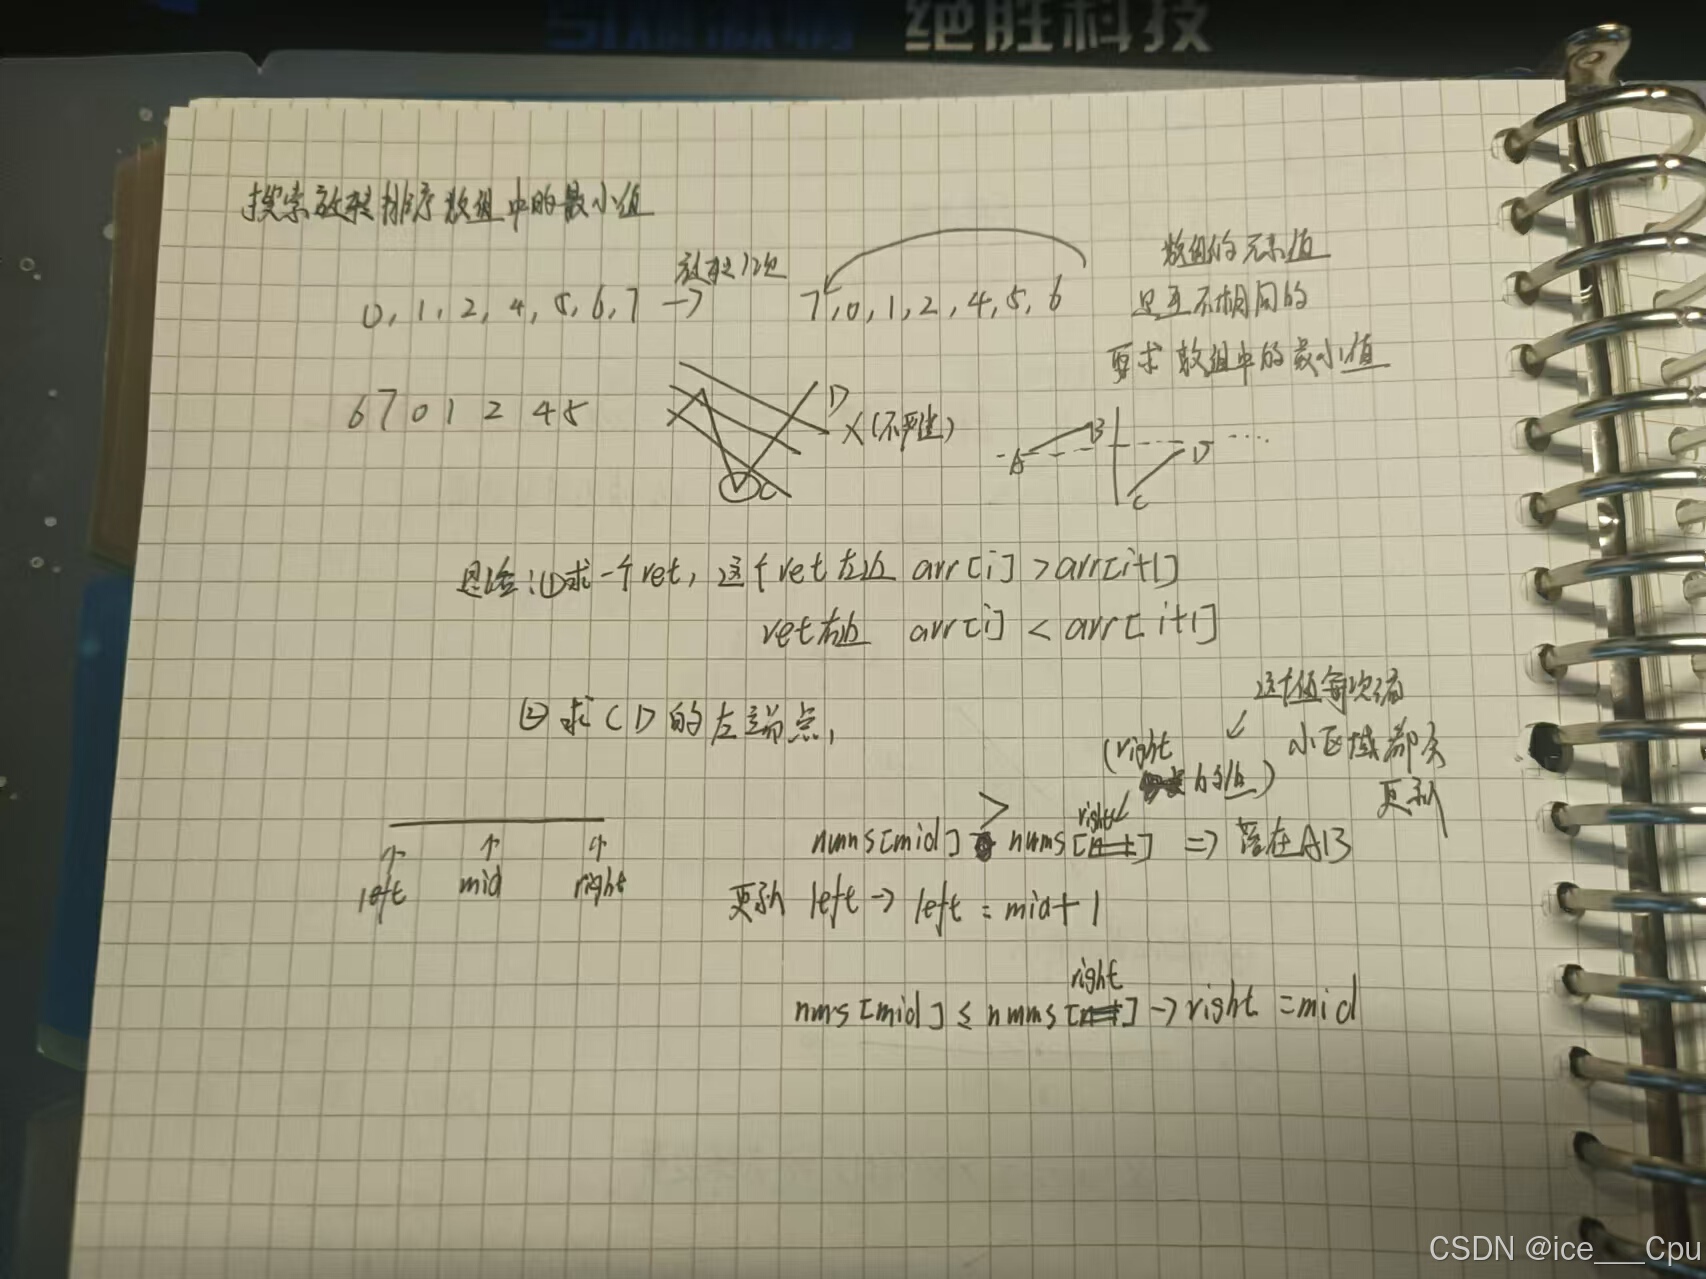 绝胜科技
搜索旋转排序数组中的最小值
旋转1次
0, 1, 2, 4, 5, 6, 7 → 7, 0, 1, 2, 4, 5, 6
数组的元素值
是互不相同的
要求数组中的最小值
6 7 0 1 2 4 5
D
X(不严谨)
C
A B
C D
思路:①求一个ret, 这个ret左边 arr[i] > arr[i+1]
ret右边 arr[i] < arr[i+1]
②求CD的左端点,
这个值每次缩
小区域都会
更新
(right
的值)
left mid right
nums[mid] > nums[right] => 落在AB
更新 left → left = mid + 1
nms[mid] ≤ nmms[right] → right = mid
CSDN @ice___Cpu